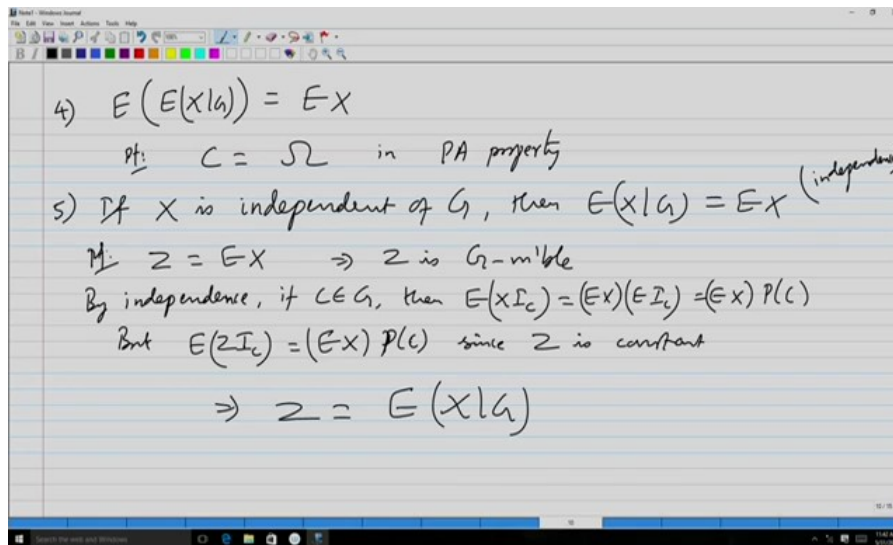 Note1 - Windows Journal
File Edit View Insert Actions Tools Help
B I
4) E(E(X|G)) = EX
Pf: C = Ω in PA property
5) If X is independent of G, then E(X|G) = EX (independence
Pf: Z = EX ⇒ Z is G-m'ble
By independence, if C∈G, then E(XI_c) = (EX)(EI_c) = (EX) P(C)
But E(ZI_c) = (EX) P(C) since Z is constant
⇒ Z = E(X|G)
10
Search the web and Windows